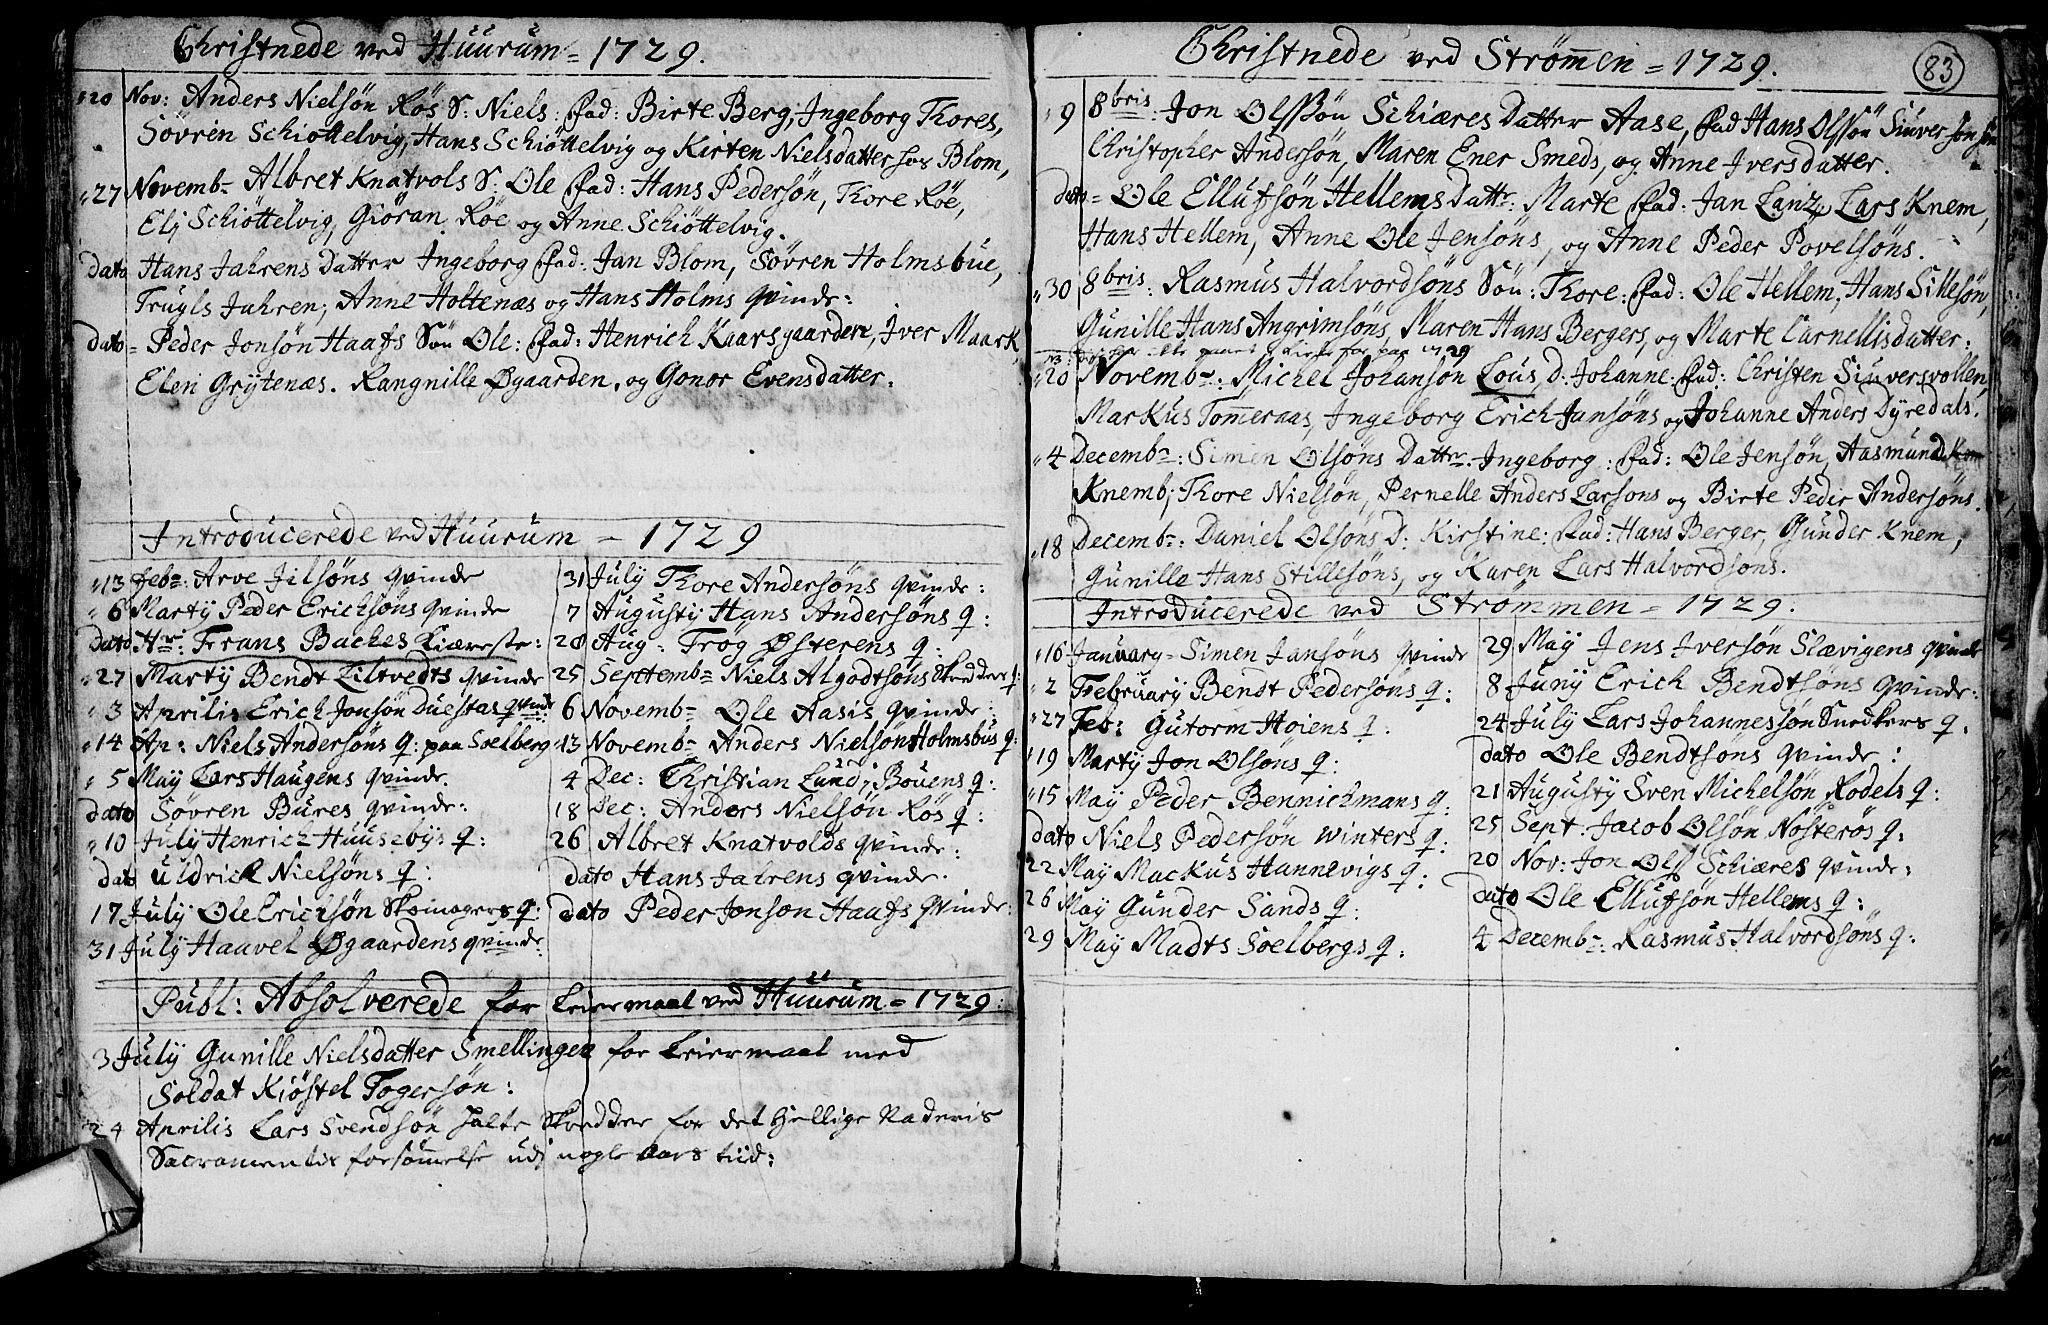 Christnede ved Huurum = 1729.
20 Nov: Anders Nielsön Rös S: Niels: Fad: Birte Berg, Ingeborg Thores,
Sövren Schiöttelvig, Hans Schiöttelvig og Kirten Nielsdatter hos Blom,
27 Novemb= Albret Knatvols S: Ole Fad: Hans Pedersön, Thore Röe,
Elj Schiöttelvig, Giöran Röe og Anne Schiöttelvig.
dato Hans Jahrens Datter Ingeborg Fad: Jan Blom, Sövren Holmsbue,
Trugls Jahren, Anne Holtenæs og Hans Holms qvinde:
dato= Peder Jonsön Haafs Sön Ole: Fad: Henrich Kaarsgaarden, Iver Maark,
Elen Grÿtenæs. Rangnille Øgaarden, og Gonor Evensdatter.
Introducerede ved Huurum - 1729
13 Feb=: Arve Jilsöns qvinde
6 Martÿ Peder Erichsöns qvinde
Dato Hr: Frans Backes Kiæreste:
27 Martÿ Bendt Eiltvedts qvinde
3 Aprilis Erich Jonsön Duestas qvinde
14 Ap: Niels Andersöns q: paa Soelberg
5 Maÿ Lars Haugens qvinde
dato Sövren Bures qvinde:
10 Julÿ Henrich Huusebÿs q:
dato Uldrick Nielsöns q:
17 Julÿ Ole Erichsön Skomagers q:
31 Julÿ Haavel Øgaardens qvinde:
31 Julÿ Thore Andersöns qvinde:
7 Augustÿ Hans Andersöns q:
28 Aug: Trog Østerens q:
25 Septtemb= Niels Algodtsöns Skrædders q:
6 Novemb= Ole Aasis qvinde:
13 Novemb= Anders Nielsön Holmsbus q:
4 Dec: Christian Lund i Bouens q:
18 Dec: Anders Nielsön Rös q:
26 Albret Knatvolds qvinde:
dato Hans Jahrens qvinde.
dato Peder Jonsön Haafs qvinde:
Publ: Absolverede for Leiermaal ved Huurum = 1729:
3 Julÿ Gunille Nielsdatter Smellingen for Leiermaal med
Soldat Kiöstel Togersön:
24 Aprilis Lars Svendsön halte Skredder for det Hellige Naderis
Sacramentis forsömmelse udj nogle Aars tiid:
83
Christnede ved Strömen = 1729.
9 8bris: Jon Olssön Schiæres Datter Aase, Fad Hans Olssön
Christopher Andersön, Maren Ener Smeds, og Anne Iversdatter.
dato= Ole Ellufsön Hellems Dattr: Marte Fad: Jan Lanz, Lars Knem,
Hans Hellem, Anne Ole Jensöns, og Anne Peder Povelsöns.
30 8bris: Rasmus Halvordsöns Sön: Thore: Fad: Ole Hellem, Hans Sillesön,
Gunille Hans Angrimsöns, Maren Hans Bergers, og Marte Carnellisdatter:
20 Novemb=: Michel Johansön Lous D: Johanne: Fad: Christen Siuversvollen,
Markus Tömeraas, Ingeborg Erich Jansöns og Johanne Anders Dÿredals.
4 Decemb=: Simen Olsöns Dattr. Ingeborg: Fad: Ole Jensön, Aasmund
Knemb, Thore Nielsön, Pernelle Anders Larsons og Birte Peder Andersöns.
18 Decemb=: Daniel Olsöns D: Kirstine: Fad: Hans Berger, Gunder Knem,
Gunille Hans Stillesöns, og Karen Lars Halvordsons.
Introducerede ved Strömmen = 1729:
16 Januarÿ= Simen Jansöns qvinde
2 Februarÿ Bendt Pedersöns q:
27 Feb: Gutorm Hoiens q:
19 Martÿ Jon Olsöns q:
15 Maÿ Peder Bennichmans q:
dato Niels Pedersön Winters q:
22 Maÿ Mackus Hannevigs q:
26 Maÿ Gunder Sands q:
29 Maÿ Madts Soelbergs q:
29 Maÿ Jens Iversön Slævigens qvinde
8 Junÿ Erich Bendtsöns qvinde:
24 Julÿ Lars Johannessön Snedkers q.
dato Ole Bendtsons qvinde:
21 Augustÿ Sven Michelsön Rodels q:
25 Sept. Jacob Olsön Nosterös q:
20 Nov: Jon Olss Schiæres qvinde:
dato Ole Ellufsön Hellems q:
4 Decemb=: Rasmus Halvordsöns q: